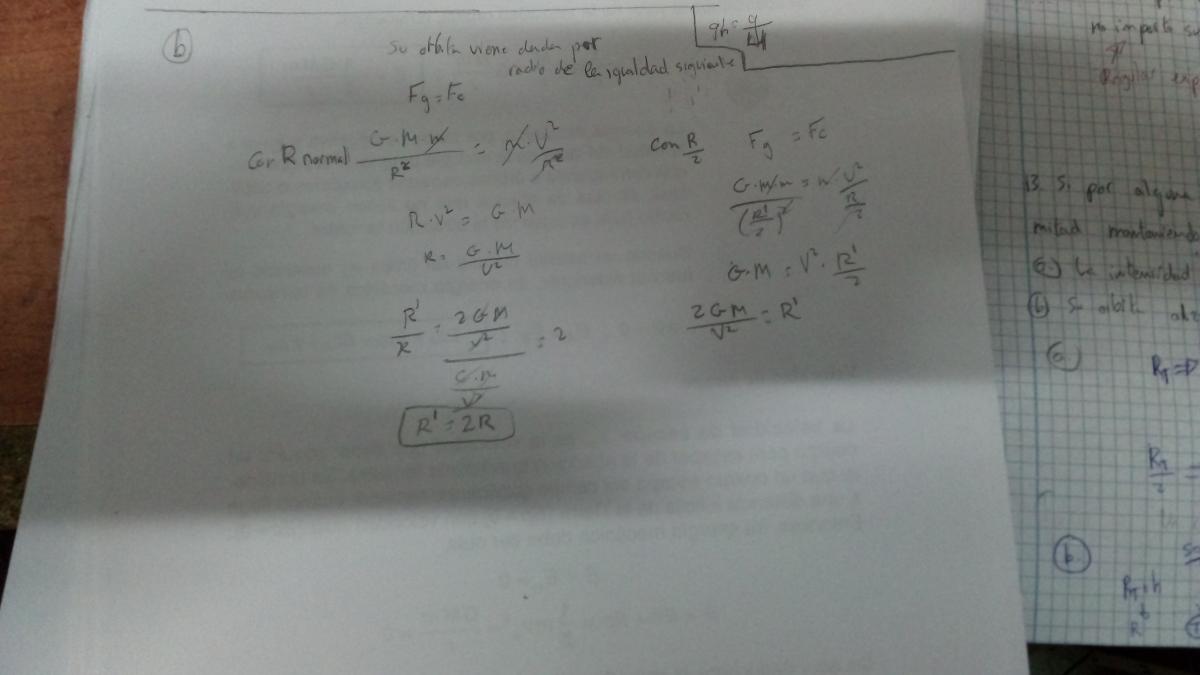 b
gh = g/4
Su órbita viene dada por
radio de la igualdad siguiente
Fg = Fc
Con R normal G·M·m/R² = m·V²/R
R·V² = G M
R = G·M/V²
R'/R = (2GM/V²)/(G·M/V²) = 2
R' = 2R
con R/2 Fg = Fc
G·M·m/(R'/2)² = m·V²/(R/2)
G·M = V²·R'/2
2GM/V² = R'
no importa su
13. Si por alguna
mitad manteniendo
a) la intensidad
b) Su órbita
a)
R_T
R_T/2 =
b.
R_T + h
R